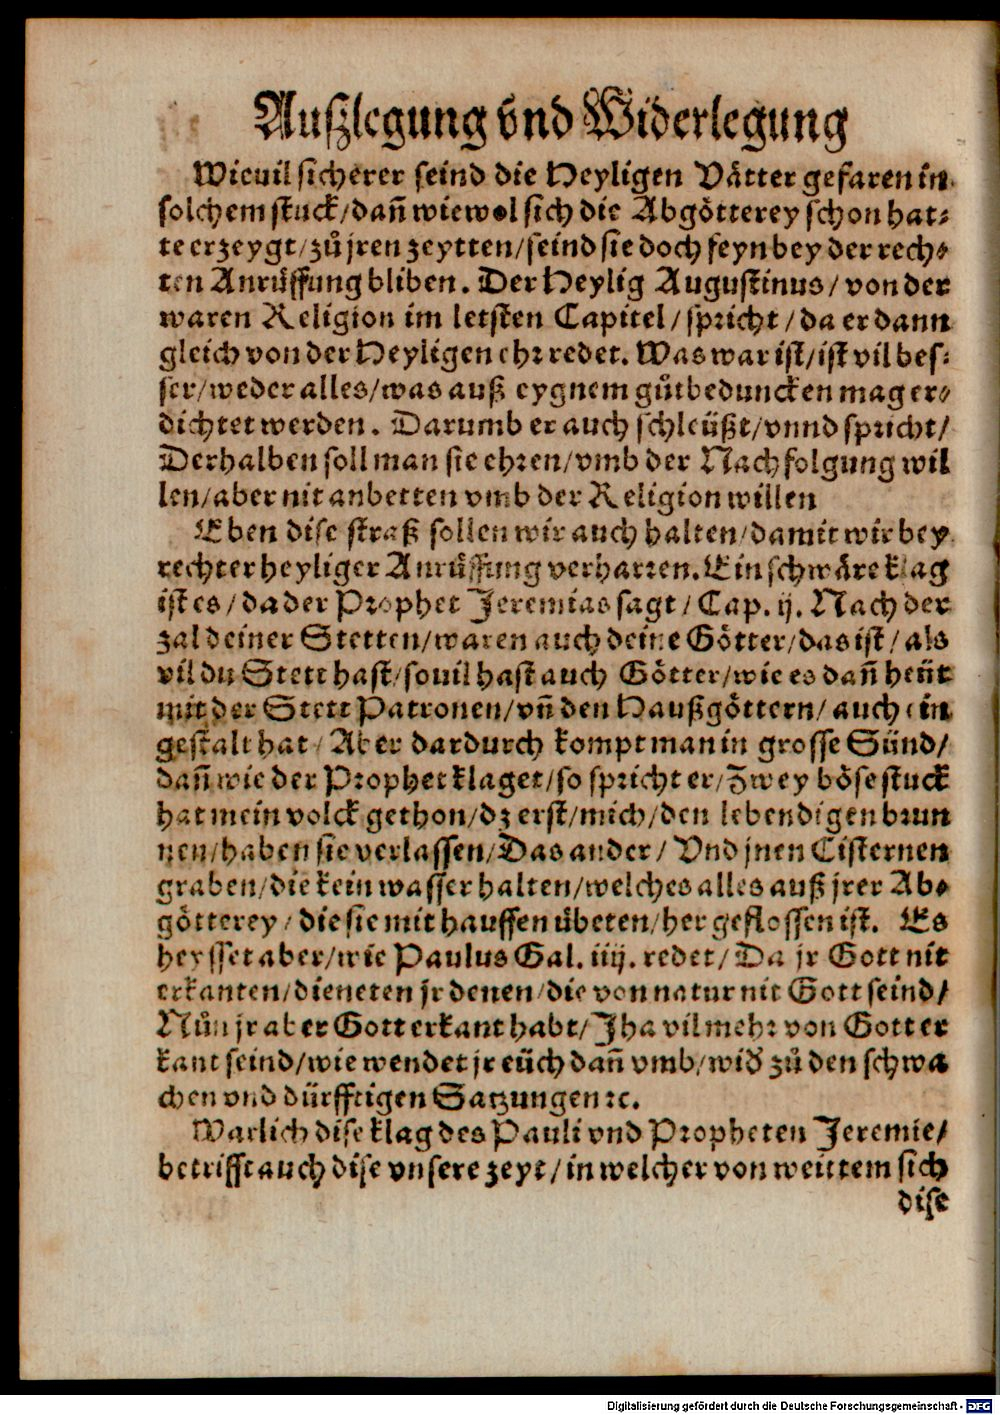 Außlegung vnd Widerlegung
Wieuil sicherer seind die Heyligen Vätter gefaren in
solchem stuck/dañ wiewol sich die Abgötterey schon hat⸗
te erzeygt/zů jren zeytten/seind sie doch feyn bey der rech⸗
ten Anrüffung bliben. Der Heylig Augustinus/von der
waren Religion im letsten Capitel/spricht/da er dann
gleich von der Heyligen ehr redet. Was war ist/ist vil bes⸗
ser/weder alles/was auß eygnem gůtbeduncken mag er⸗
dichtet werden. Darumb er auch schleüßt/vnnd spricht/
Derhalben soll man sie ehren/vmb der Nachfolgung wil
len/aber nit anbetten vmb der Religion willen
Eben dise straß sollen wir auch halten/damit wir bey
rechter heyliger Anrüffung verharren. Ein schwäre klag
ist es/da der Prophet Jeremias sagt/Cap. ij. Nach der
zal deiner Stetten/waren auch deine Götter/das ist/als
vil du Stett hast/souil hast auch Götter/wie es dañ heüt
mit der Stett Patronen/vñ den Haußgöttern/auch ein
gestalt hat/Aber dardurch kompt man in grosse Sünd/
dañ wie der Prophet klaget/so spricht er/Zwey böse stuck
hat mein volck gethon/dz erst/mich/den lebendigen brun
nen/haben sie verlassen/Das ander/Vnd jnen Cisternen
graben/die kein wasser halten/welches alles auß jrer Ab⸗
götterey/die sie mit hauffen übeten/her geflossen ist. Es
heysset aber/wie Paulus Gal. iiij. redet/Da jr Gott nit
erkanten/dieneten jr denen/die von natur nit Gott seind/
Nůn jr aber Gott erkant habt/Jha vilmehr von Gott er
kant seind/wie wendet jr eüch dañ vmb/wid' zů den schwa
chen vnd dürfftigen Satzungen ꝛc.
Warlich dise klag des Pauli vnd Propheten Jeremie/
betrifft auch dise vnsere zeyt/in welcher von weittem sich
dise
Digitalisierung gefördert durch die Deutsche Forschungsgemeinschaft - DFG